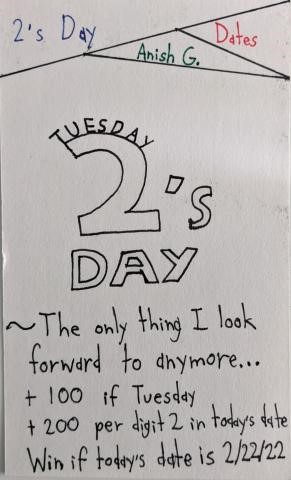 2's Day
Dates
Anish G.
TUESDAY
2's
DAY
~The only thing I look
forward to anymore...
+ 100 if Tuesday
+ 200 per digit 2 in today's date
Win if today's date is 2/22/22